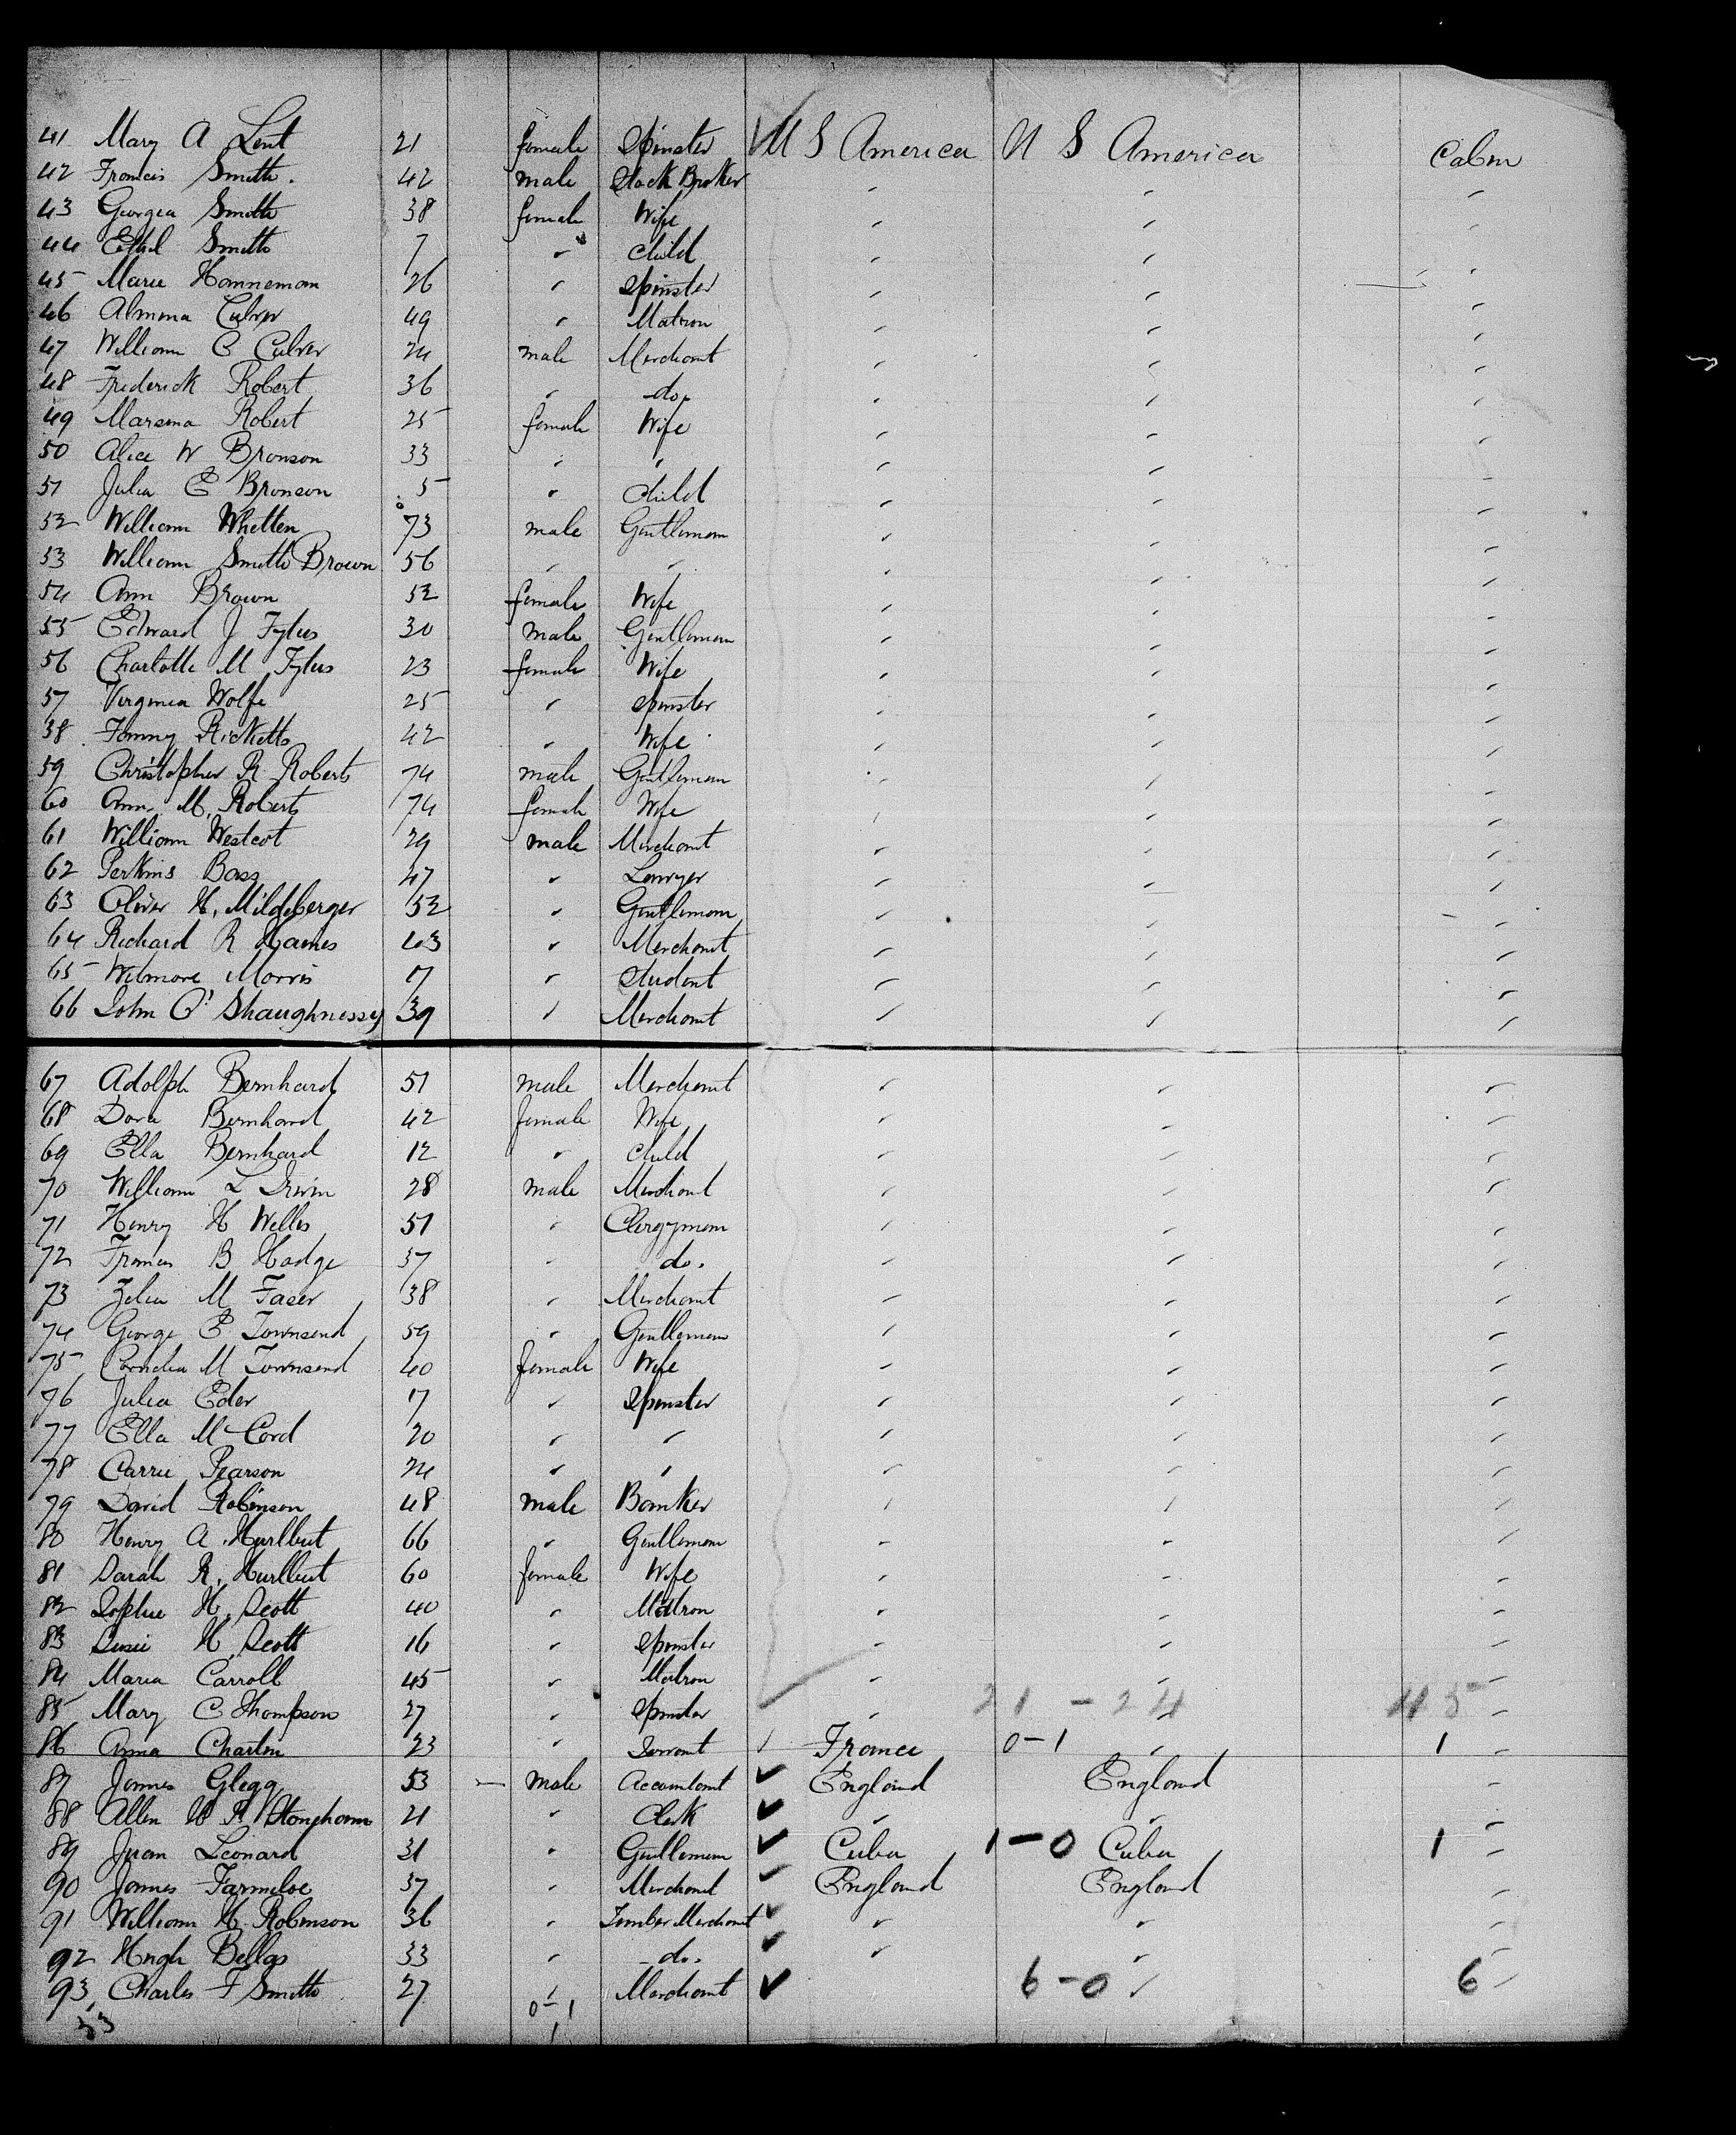 41 Mary A Lent 21 female Spinster U S America U S America Cabin
42 Francis Smith. 42 male Stock Broker " " "
43 Georgea Smith 38 female Wife " " "
44 Ethel Smith 7 " Child " " "
45 Marie Hanneman 26 " Spinster " " "
46 Almena Culver 49 " Matron " " "
47 William C Culver 24 male Merchant " " "
48 Frederick Robert 36 " do. " " "
49 Robert 25 female Wife " " "
50 Alice W Bronson 33 " " " " "
51 Julia E Bronson 5 " Child " " "
52 William Whetten 73 male Gentleman " " "
53 William Smith Brown 56 " " " " "
54 Ann Brown 52 female Wife " " "
55 Edward J 30 male Gentleman " " "
56 Charlotte M 23 female Wife " " "
57 Virginia Wolfe 25 " Spinster " " "
38 Fanny Ricketts 42 " Wife " " "
59 Christopher R Roberts 74 male Gentleman " " "
60 Ann M. Roberts 74 female Wife " " "
61 William Westcot 29 male Merchant " " "
62 Perkins Bass 47 " Lawyer " " "
63 Oliver H. Mildeberger 52 " Gentleman " " "
64 Richard R Haines 43 " Merchant " " "
65 Wilmore Morris 17 " Student " " "
66 John O'Shaughnessy 39 " Merchant " " "
67 Adolph Bernhard 51 male Merchant " " "
68 Dora Bernhard 42 female Wife " " "
69 Ella Bernhard 12 " Child " " "
70 William L Irwin 28 male Merchant " " "
71 Henry H Welles 51 " Clergyman " " "
72 Francis B Hodge 37 " do. " " "
73 M Faser 38 " Merchant " " "
74 George E Townsend 59 " Gentleman " " "
75 Cornelia M Townsend 40 female Wife " " "
76 Julia Eder 17 " Spinster " " "
77 Ella McCord 20 " " " " "
78 Carrie Pearson 24 " " " " "
79 David Robinson 48 male Banker " " "
80 Henry A. Hurlbut 66 " Gentleman " " "
81 Sarah R. Hurlbut 60 female Wife " " "
82 Sophie H. Scott 40 " Matron " " "
83 Susie H Scott 16 " Spinster " " "
84 Maria Carroll 45 " Matron " " "
85 Mary C Thompson 27 " Spinster " 21-24 " 45 "
86 Anna Charlin 23 " Servant France 0-1 " 1 "
87 James Glegg 53 — male Accountant England England "
88 Allen 21 " Clerk " " "
89 Juan Leonard 31 " Gentleman Cuba 1-0 Cuba 1 "
90 James Farmiloe 37 " Merchant England England "
91 William H. Robinson 36 " Timber Merchant " " "
92 Hugh Bellas 33 " do. " " "
93 Charles F Smith 27 " Merchant 6-0 " 6 "
53 0-1
1